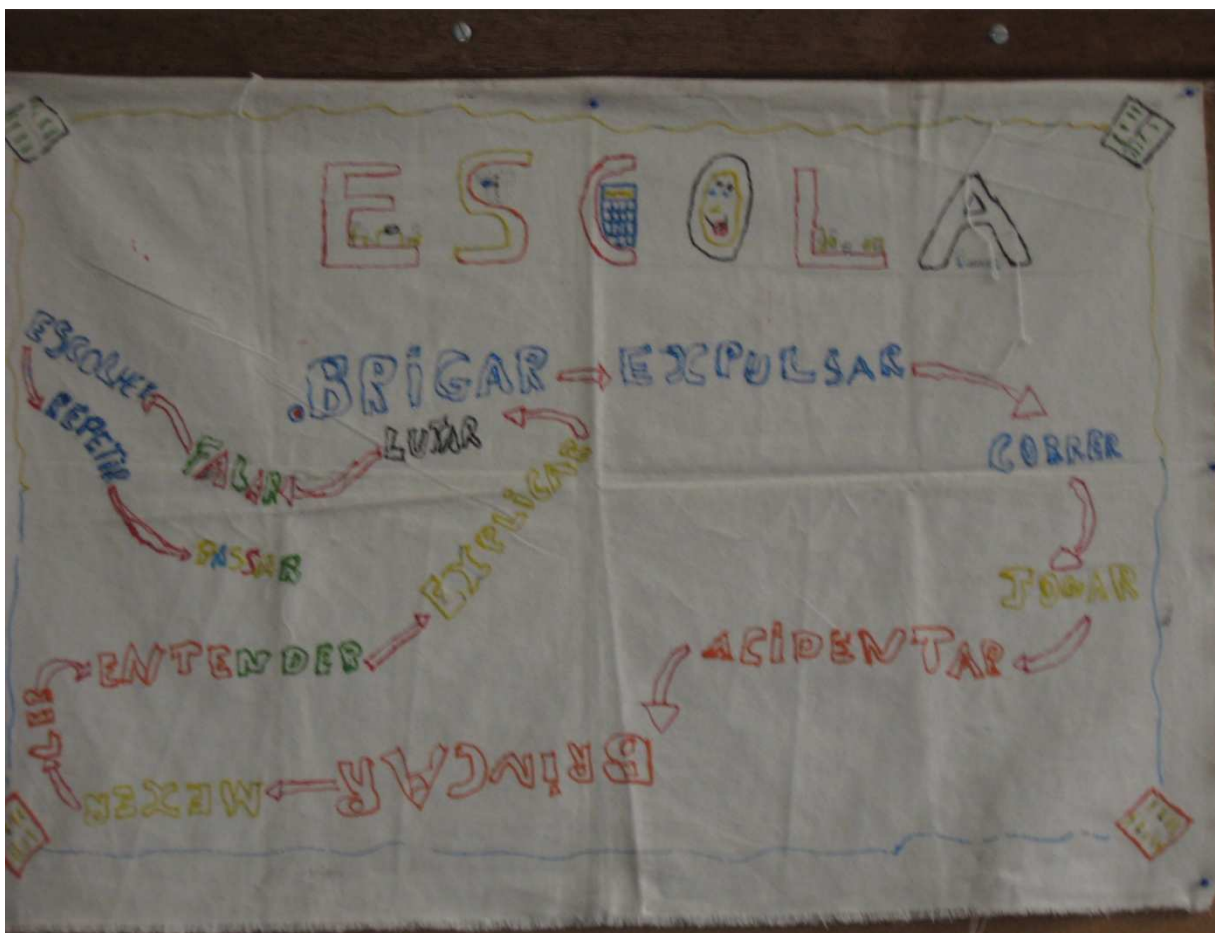 ESCOLA
.BRiGAR
EXPULSAR
CORRER
JOGAR
ACiDENTAR
BRiNCAR
MEXER
LER
ENTENDER
EXPLiCAR
LUTAR
FALAR
ESCOLHER
REPETiR
PASSAR